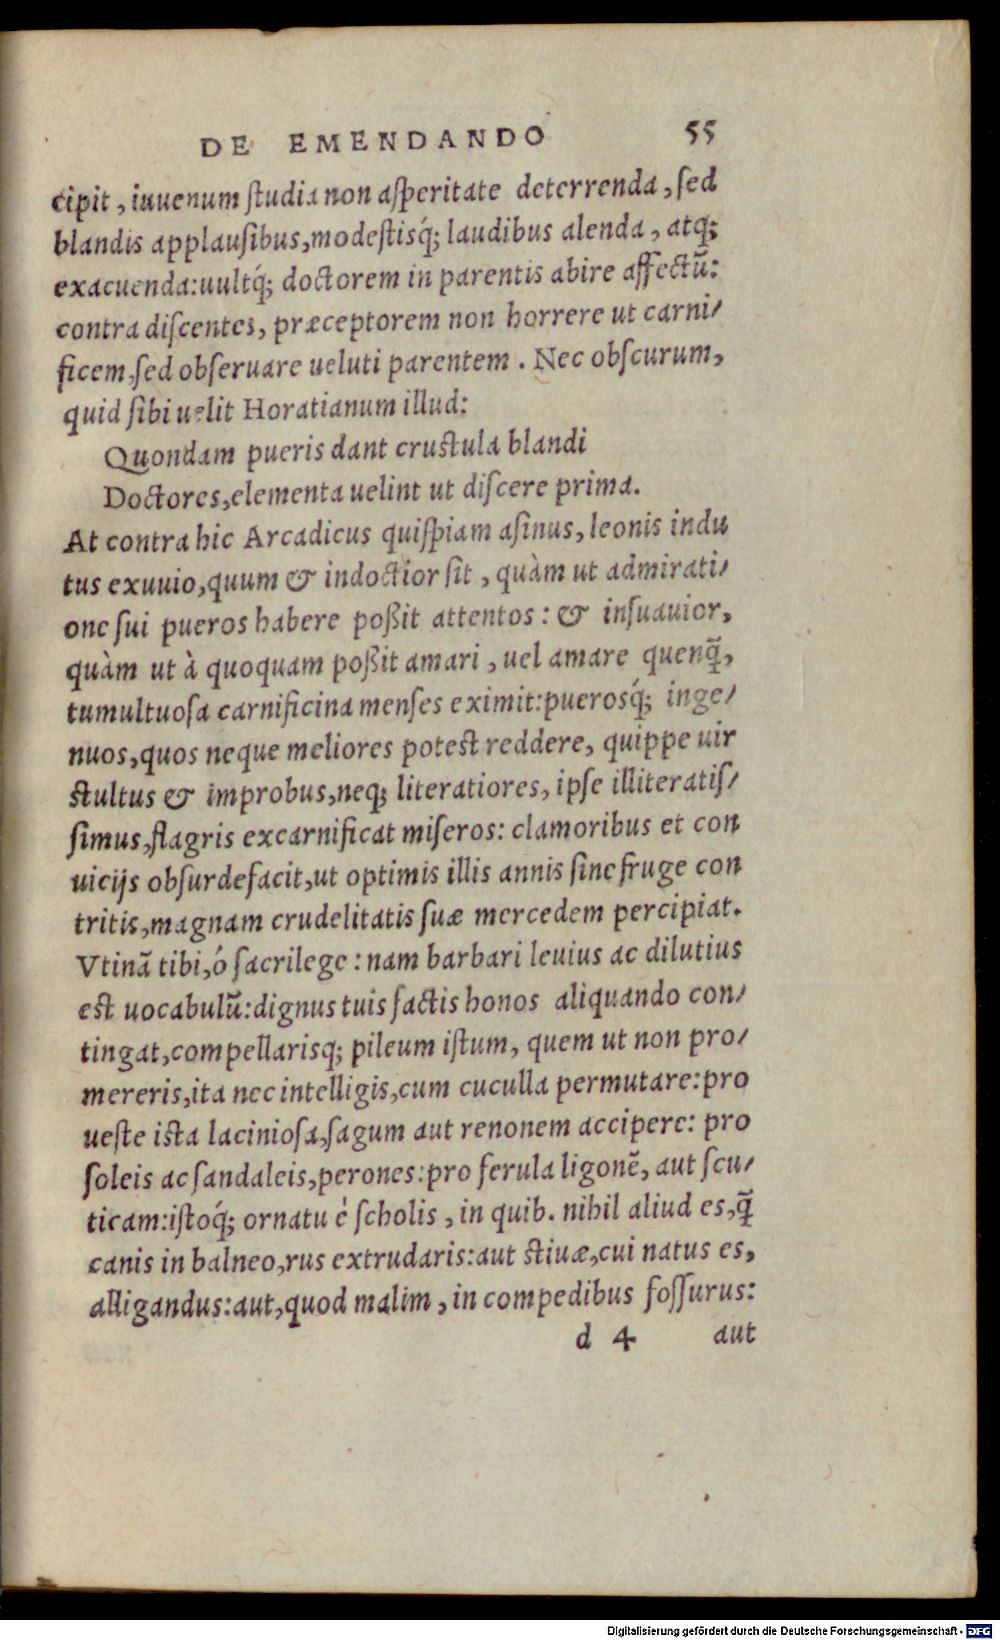 DE EMENDANDO 55
cipit, iuuenum ſtudia non aſperitate deterrenda, ſed
blandis applauſibus, modeſtisq́; laudibus alenda, atq;
exacuenda: uultq́; doctorem in parentis abire affectũ:
contra diſcentes, præceptorem non horrere ut carni/
ficem, ſed obſeruare ueluti parentem. Nec obſcurum,
quid ſibi uelit Horatianum illud:
Quondam pueris dant cruſtula blandi
Doctores, elementa uelint ut diſcere prima.
At contra hic Arcadicus quiſpiam aſinus, leonis indu
tus exuuio, quum & indoctior ſit, quàm ut admirati/
one ſui pueros habere poßit attentos: & inſuauior,
quàm ut à quoquam poßit amari, uel amare quenq̃,
tumultuoſa carnificina menſes eximit: puerosq́; inge/
nuos, quos neque meliores poteſt reddere, quippe uir
ſtultus & improbus, neq; literatiores, ipſe illiteratiſ/
ſimus, flagris excarnificat miſeros: clamoribus et con
uicijs obſurdefacit, ut optimis illis annis ſine fruge con
tritis, magnam crudelitatis ſuæ mercedem percipiat.
Vtinã tibi, ó ſacrilege: nam barbari leuius ac dilutius
eſt uocabulũ: dignus tuis factis honos aliquando con/
tingat, compellarisq; pileum iſtum, quem ut non pro/
mereris, ita nec intelligis, cum cuculla permutare: pro
ueſte iſta lacinioſa, ſagum aut renonem accipere: pro
ſoleis ac ſandaleis, perones: pro ferula ligonẽ, aut ſcu/
ticam: iſtoq́; ornatu é ſcholis, in quib. nihil aliud es, q̃
canis in balneo, rus extrudaris: aut ſtiuæ, cui natus es,
alligandus: aut, quod malim, in compedibus foſſurus:
d 4 aut
Digitalisierung gefördert durch die Deutsche Forschungsgemeinschaft - DFG